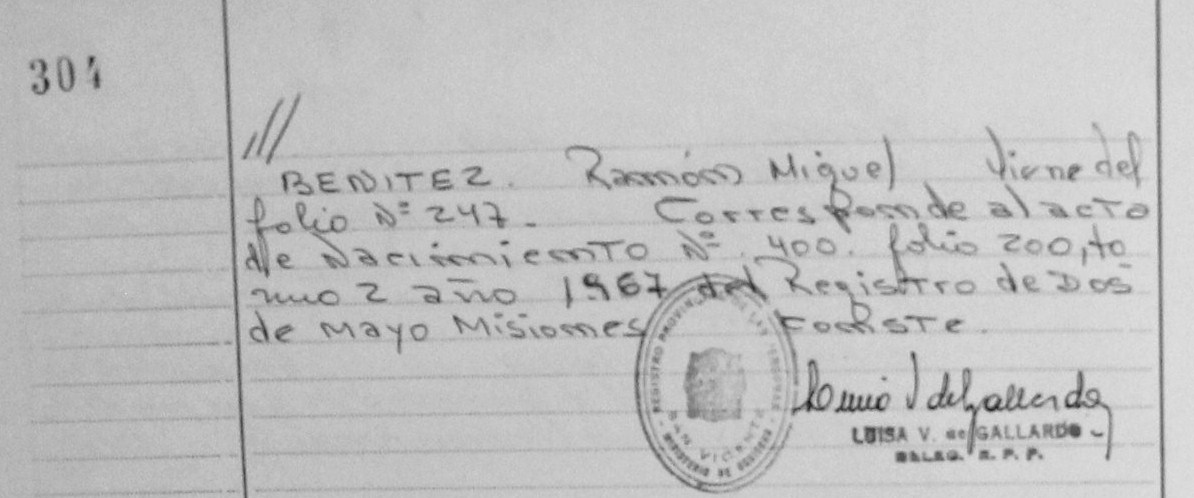 304
///
BENITEZ. Ramón Miguel Viene del
folio Nº 247.- Corresponde al acta
de Nacimiento Nº 400. folio 200, to
mo 2 año 1967 del Registro de Dos
de Mayo Misiones Conste.
REGISTRO PROVINCIAL DE LAS PERSONAS
SAN VICENTE
MINISTERIO DE GOBIERNO
LUISA V. de GALLARDO
DELEG. R. P. P.